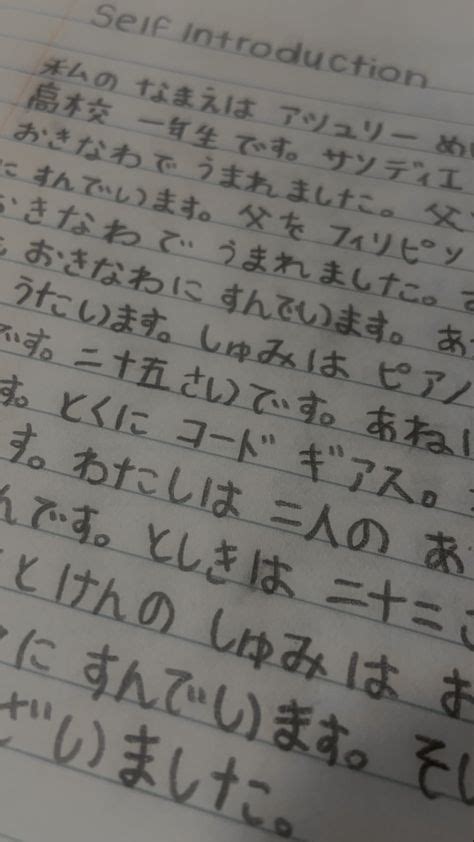 Self Introduction
私の なまえは アシュリー めい
高校 一年生 です。 サンディエ
おきなわで うまれました。 父
に すんでいます。 父を フィリピン
おきなわで うまれました。
おきなわに すんでいます。 あ
うたいます。 しゅみは ピアノ
です。 二十五さいです。 あねは
す。 とくに コード ギアス。
す。 わたしは 二人の あ
んです。 としきは 二十二
とけんの しゅみは お
に すんでいます。 そし
ざいました。